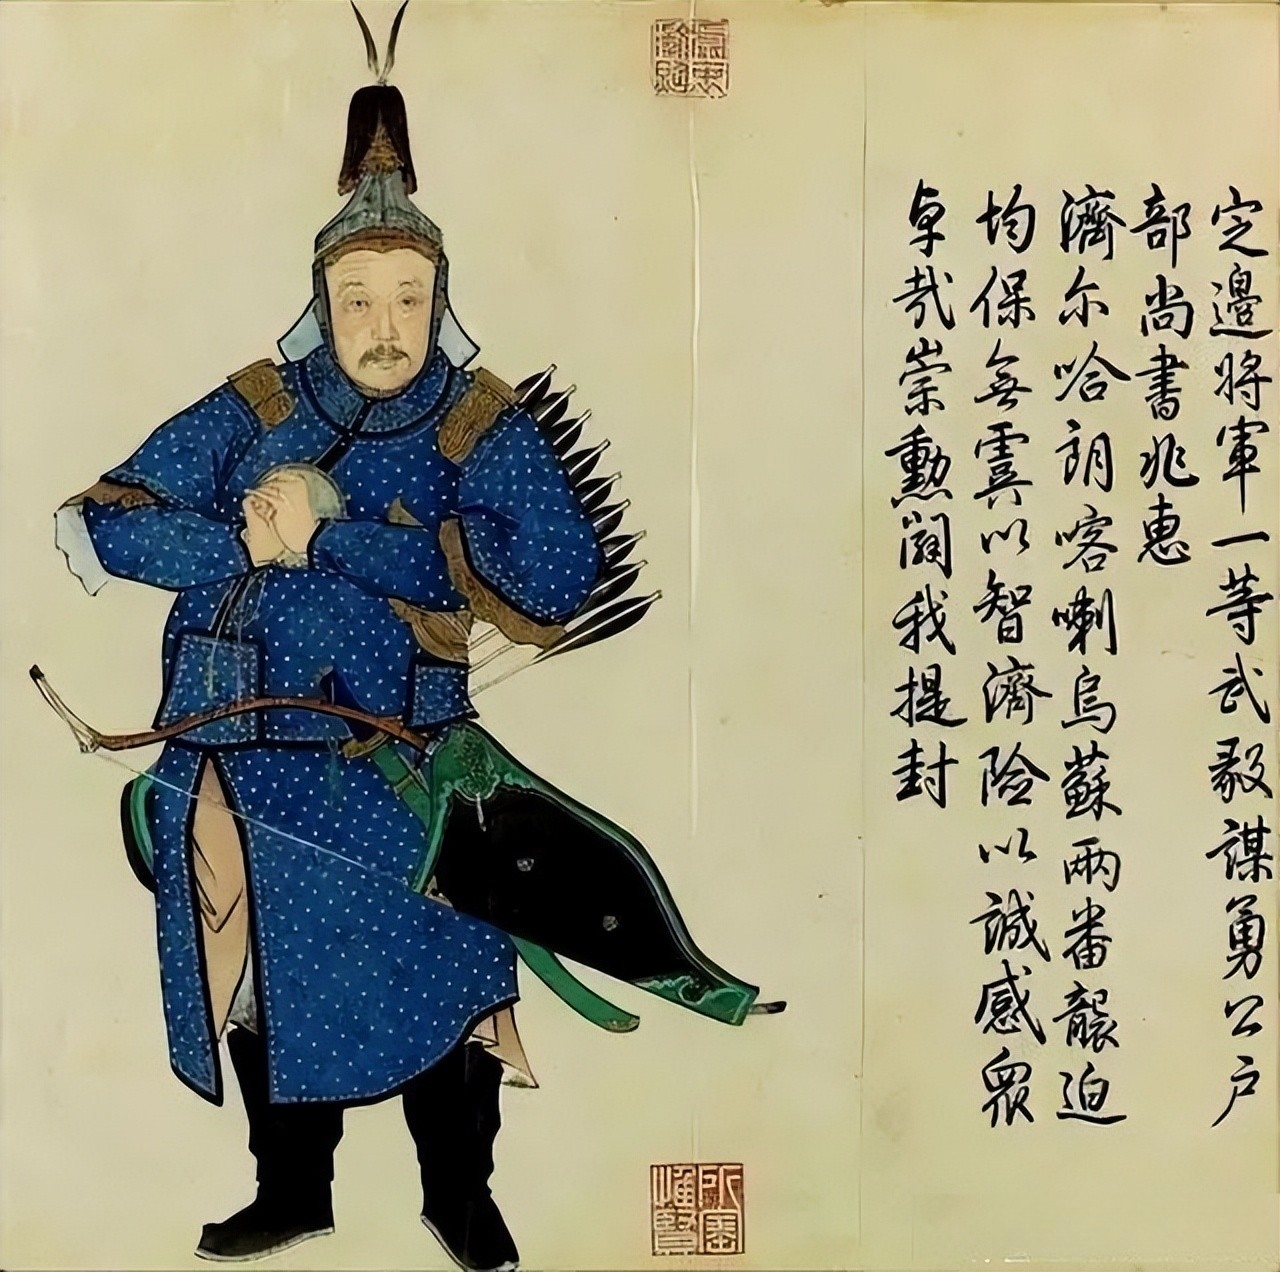 定邊將軍一等武毅謀勇公户
部尚書兆惠
濟尔哈朗喀喇烏蘇兩番襲迫
均保無虞以智濟險以誠感衆
卓哉崇勳闢我提封
所寶
惟賢